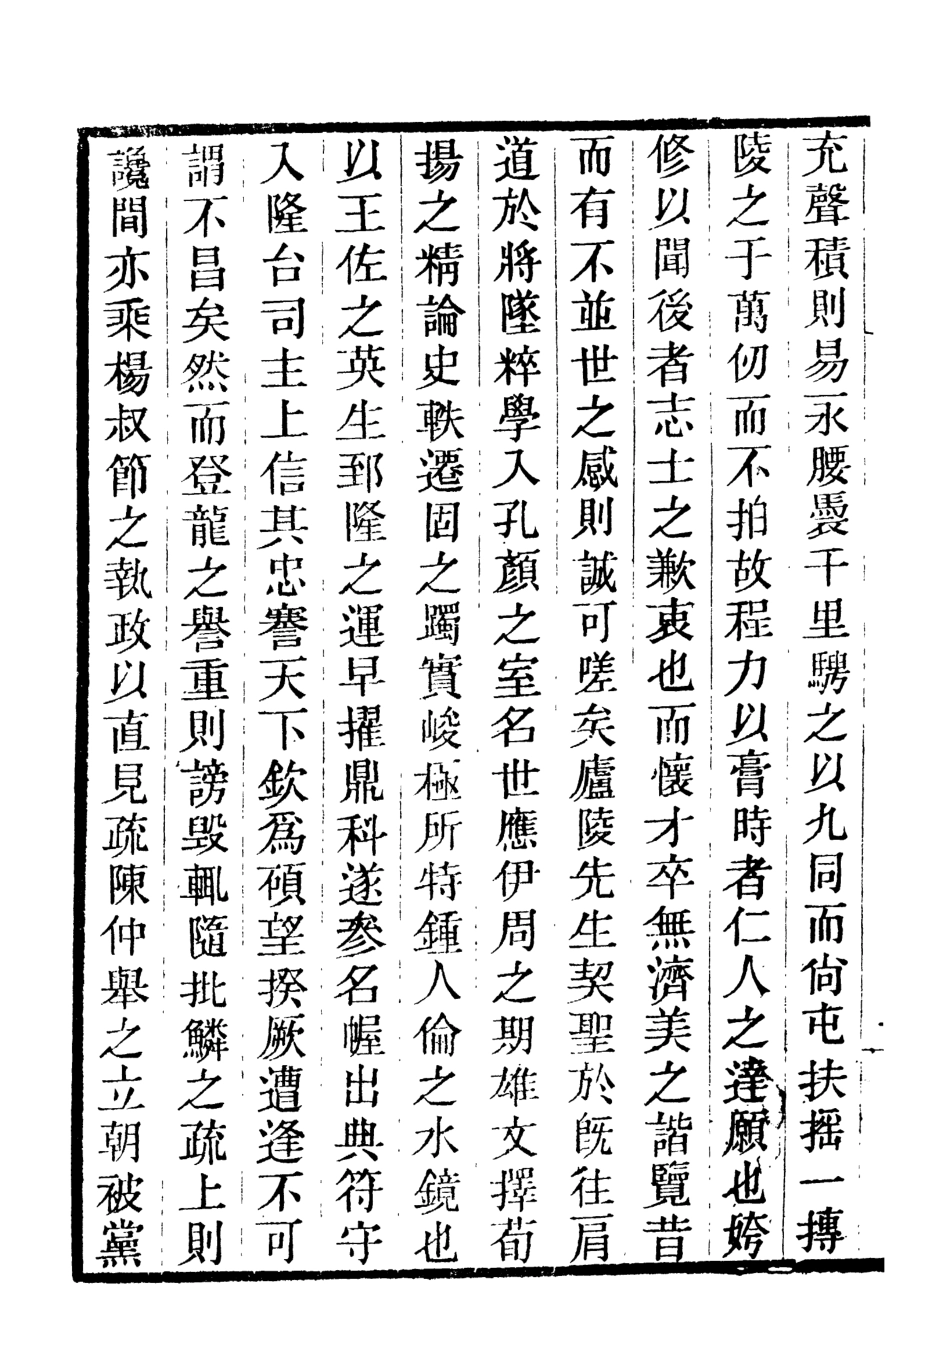 充聲積則易永腰褭千里騁之以九同而尙屯扶摇一摶
陵之于萬仞而不拍故程力以膏時者仁人之達願也姱
修以聞後者志士之歉衷也而懷才卒無濟美之諧覽昔
而有不並世之感則誠可嗟矣廬陵先生契聖於旣往肩
道於將墜粹學入孔顏之室名世應伊周之期雄文擇荀
揚之精論史軼遷固之躅實峻極所特鍾人倫之水鏡也
以王佐之英生郅隆之運早擢鼎科遂參名幄出典符守
入隆台司主上信其忠謇天下欽爲碩望揆厥遭逢不可
謂不昌矣然而登龍之譽重則謗毁輒隨批鱗之疏上則
讒間亦乘楊叔節之執政以直見疏陳仲舉之立朝被黨